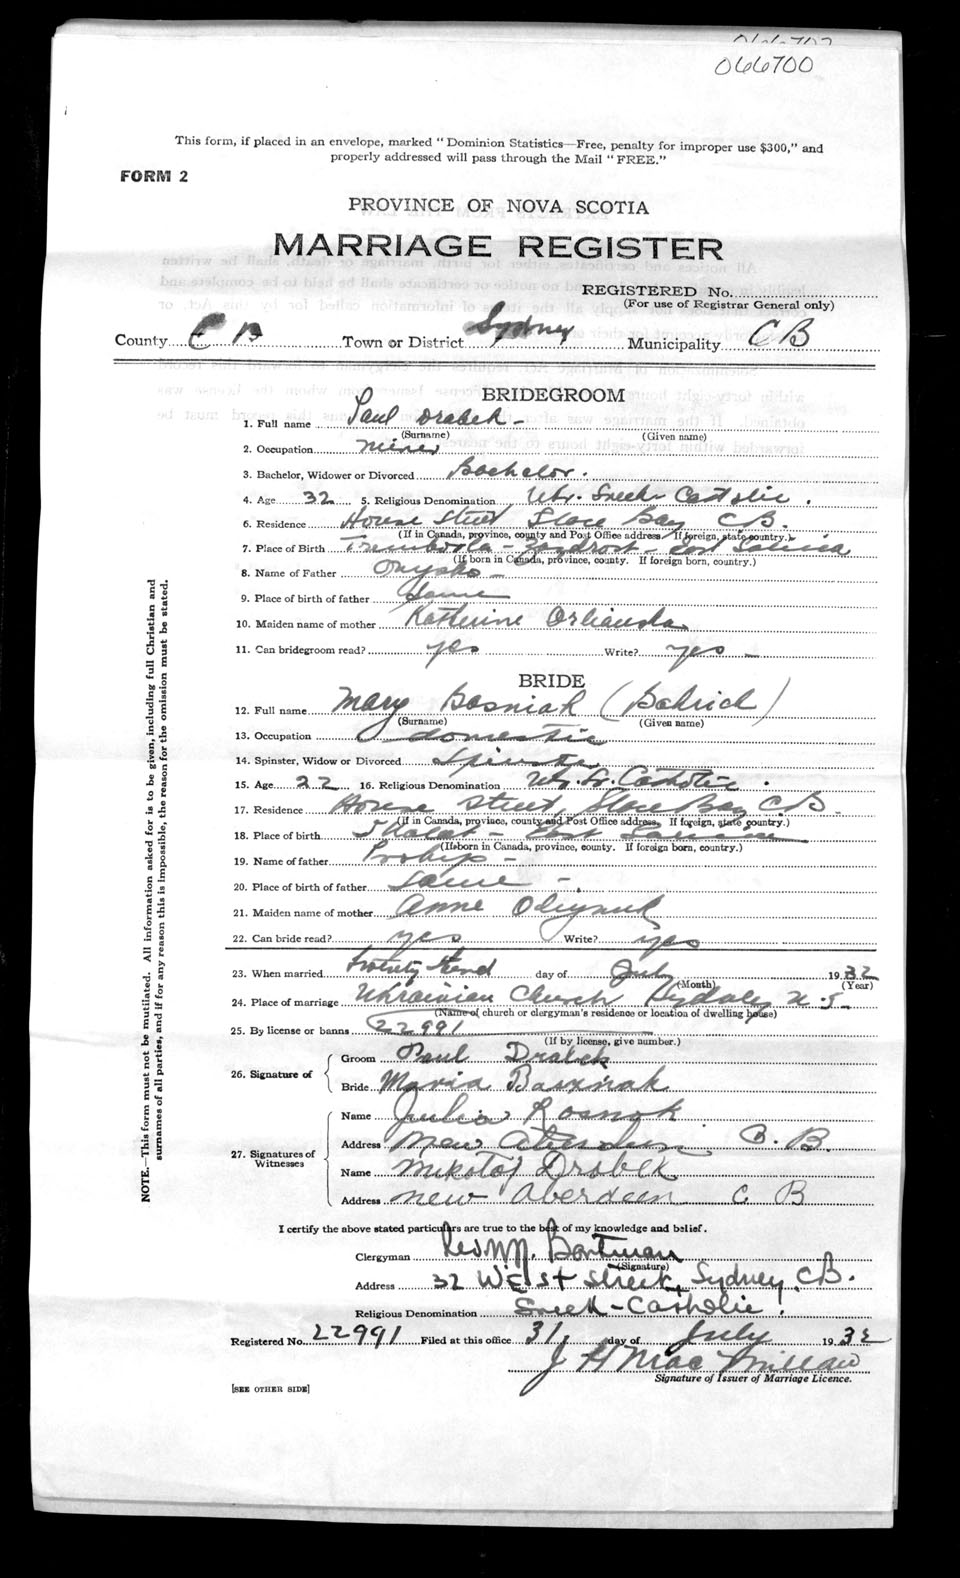 066700
This form, if placed in an envelope, marked "Dominion Statistics—Free, penalty for improper use $300," and
properly addressed will pass through the Mail "FREE."
FORM 2
PROVINCE OF NOVA SCOTIA
MARRIAGE REGISTER
REGISTERED No.
(For use of Registrar General only)
County C B Town or District Sydney Municipality C B
BRIDEGROOM
1. Full name Paul Drabek -
(Surname) (Given name)
2. Occupation miner
3. Bachelor, Widower or Divorced Bachelor.
4. Age 32 5. Religious Denomination Ukr. Greek Catholic.
6. Residence House Street Glace Bay CB.
(If in Canada, province, county and Post Office address. If foreign, state country.)
7. Place of Birth Trembowla - - East Galicia
(If born in Canada, province, county. If foreign born, country.)
8. Name of Father Onysko -
9. Place of birth of father Same
10. Maiden name of mother Katherine
11. Can bridegroom read? yes Write? yes -
BRIDE
12. Full name Mary Bosniak ( )
(Surname) (Given name)
13. Occupation domestic
14. Spinster, Widow or Divorced Spinster
15. Age 22 16. Religious Denomination Uk. Gr. Catholic.
17. Residence House Street, Glace Bay CB -
(If in Canada, province, county and Post Office address. If foreign, state country.)
18. Place of birth Skalat - East Galicia
(If born in Canada, province, county. If foreign born, country.)
19. Name of father Prokip -
20. Place of birth of father Same -
21. Maiden name of mother Anne
22. Can bride read? yes Write? yes
23. When married day of July 1932
(Month) (Year)
24. Place of marriage Ukrainian Church Sydney N.S
(Name of church or clergyman's residence or location of dwelling house)
25. By license or banns 22991
(If by license, give number.)
26. Signature of
Groom Paul Drabek
Bride Maria
27. Signatures of Witnesses
Name Julia
Address New Aberdeen C. B.
Name Drobek
Address New Aberdeen C B
I certify the above stated particulars are true to the best of my knowledge and belief.
Clergyman Rev M.
(Signature)
Address 32 West Street, Sydney CB.
Religious Denomination Greek-Catholic!
Registered No. 22991 Filed at this office 31, day of July 1932
J H MacMillan
Signature of Issuer of Marriage Licence.
[SEE OTHER SIDE]
NOTE.—This form must not be mutilated. All information asked for is to be given, including full Christian and
surnames of all parties, and if for any reason this is impossible, the reason for the omission must be stated.